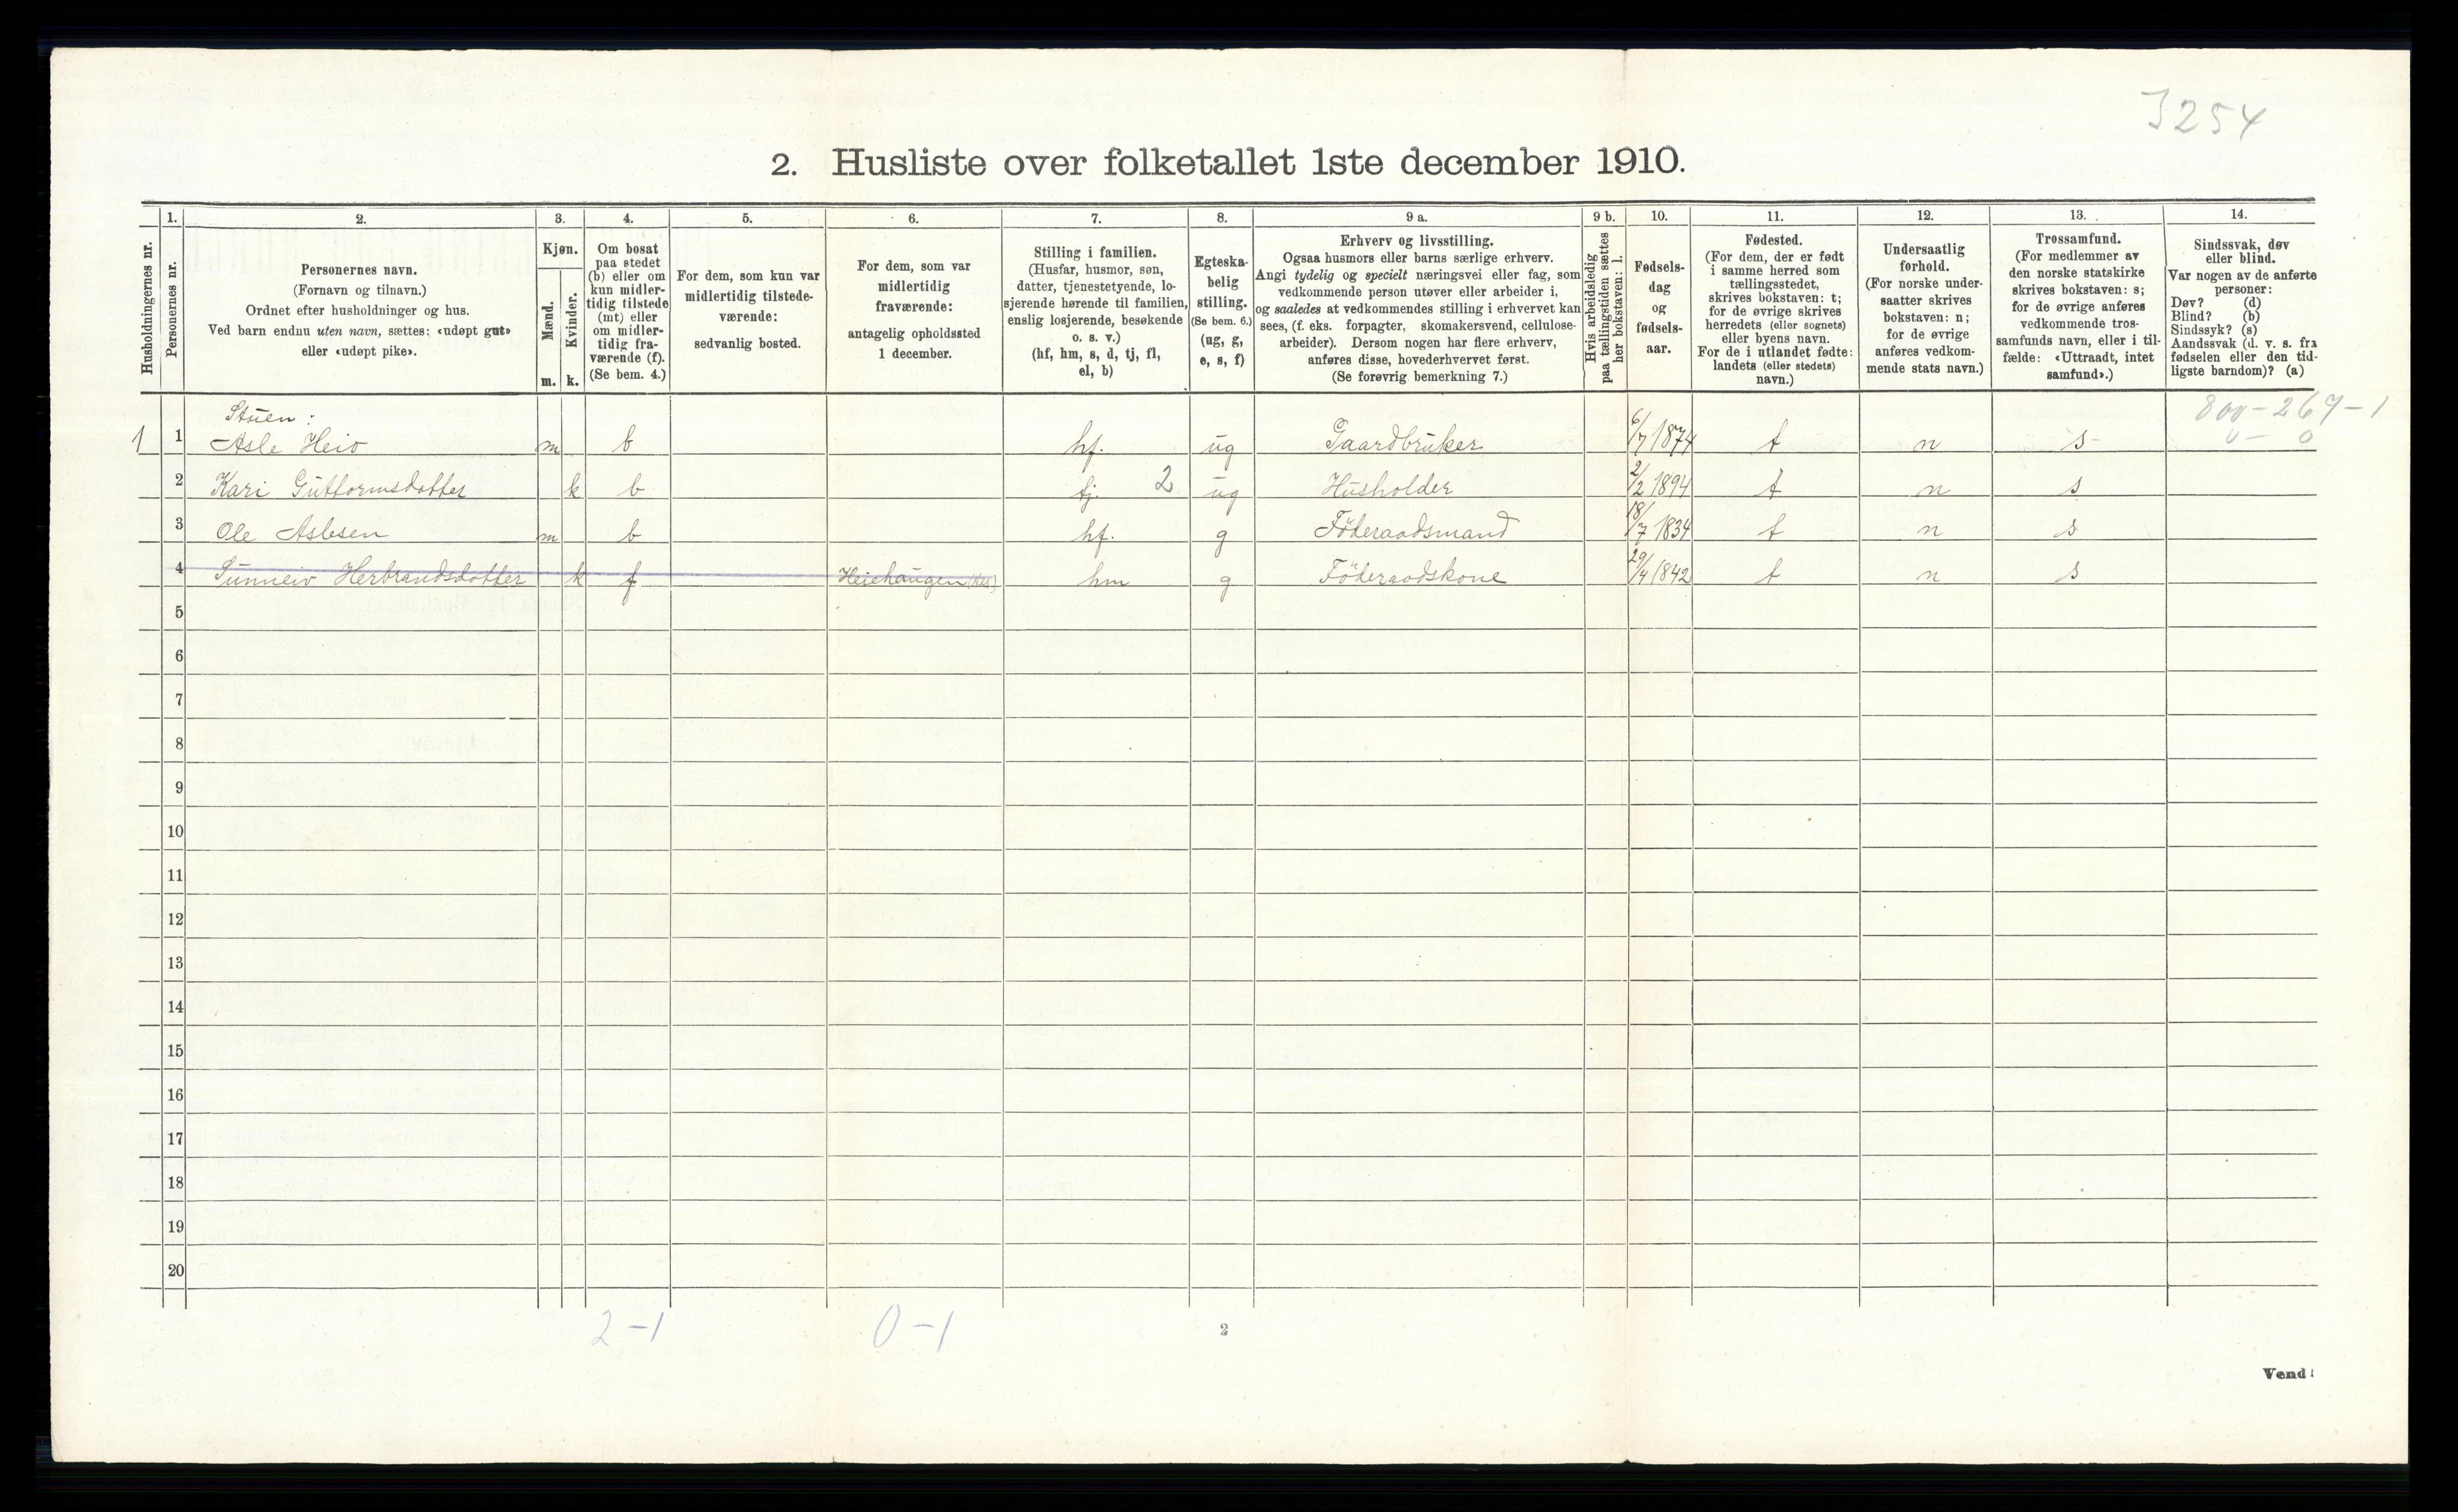 3254
2. Husliste over folketallet 1ste december 1910.
Husholdningernes nr.
1.
Personernes nr.
2.
Personernes navn.
(Fornavn og tilnavn.)
Ordnet efter husholdninger og hus.
Ved barn endnu uten navn, sættes: «udøpt gut»
eller «udøpt pike».
3.
Kjøn.
Mænd.
Kvinder.
m. k.
4.
Om bosat
paa stedet
(b) eller om
kun midler-
tidig tilstede
(mt) eller
om midler-
tidig fra-
værende (f).
(Se bem. 4.)
5.
For dem, som kun var
midlertidig tilstede-
værende:
sedvanlig bosted.
6.
For dem, som var
midlertidig
fraværende:
antagelig opholdssted
1 december.
7.
Stilling i familien.
(Husfar, husmor, søn,
datter, tjenestetyende, lo-
sjerende hørende til familien,
enslig losjerende, besøkende
o. s. v.)
(hf, hm, s, d, tj, fl,
el, b)
8.
Egteska-
belig
stilling.
(Se bem. 6.)
(ug, g,
e, s, f)
9 a.
Erhverv og livsstilling.
Ogsaa husmors eller barns særlige erhverv.
Angi tydelig og specielt næringsvei eller fag, som
vedkommende person utøver eller arbeider i,
og saaledes at vedkommendes stilling i erhvervet kan
sees, (f. eks. forpagter, skomakersvend, cellulose-
arbeider). Dersom nogen har flere erhverv,
anføres disse, hovederhvervet først.
(Se forøvrig bemerkning 7.)
9 b.
Hvis arbeidsledig
paa tællingstiden sættes
her bokstaven: l.
10.
Fødsels-
dag
og
fødsels-
aar.
11.
Fødested.
(For dem, der er født
i samme herred som
tællingsstedet,
skrives bokstaven: t;
for de øvrige skrives
herredets (eller sognets)
eller byens navn.
For de i utlandet fødte:
landets (eller stedets)
navn.)
12.
Undersaatlig
forhold.
(For norske under-
saatter skrives
bokstaven: n;
for de øvrige
anføres vedkom-
mende stats navn.)
13.
Trossamfund.
(For medlemmer av
den norske statskirke
skrives bokstaven: s;
for de øvrige anføres
vedkommende tros-
samfunds navn, eller i til-
fælde: «Uttraadt, intet
samfund».)
14.
Sindssvak, døv
eller blind.
Var nogen av de anførte
personer:
Døv? (d)
Blind? (b)
Sindssyk? (s)
Aandssvak (d. v. s. fra
fødselen eller den tid-
ligste barndom)? (a)
800-269-1
0 - 0
Stuen:
1 1 Asle Heio m b hf. ug Gaardbruker 6/7 1874 t n s
2 Kari Guttormsdotter k b tj. 2 ug Husholder 2/2 1894 t n s
3 Ole Aslesen m b hf. g Föderaadsmand 18/7 1834 t n s
4 Sunneiv Herbrandsdotter k f Heiehaugen (Nes) hm g Föderaadskone 29/4 1842 t n s
5
6
7
8
9
10
11
12
13
14
15
16
17
18
19
20
2-1 0-1
2
Vend!